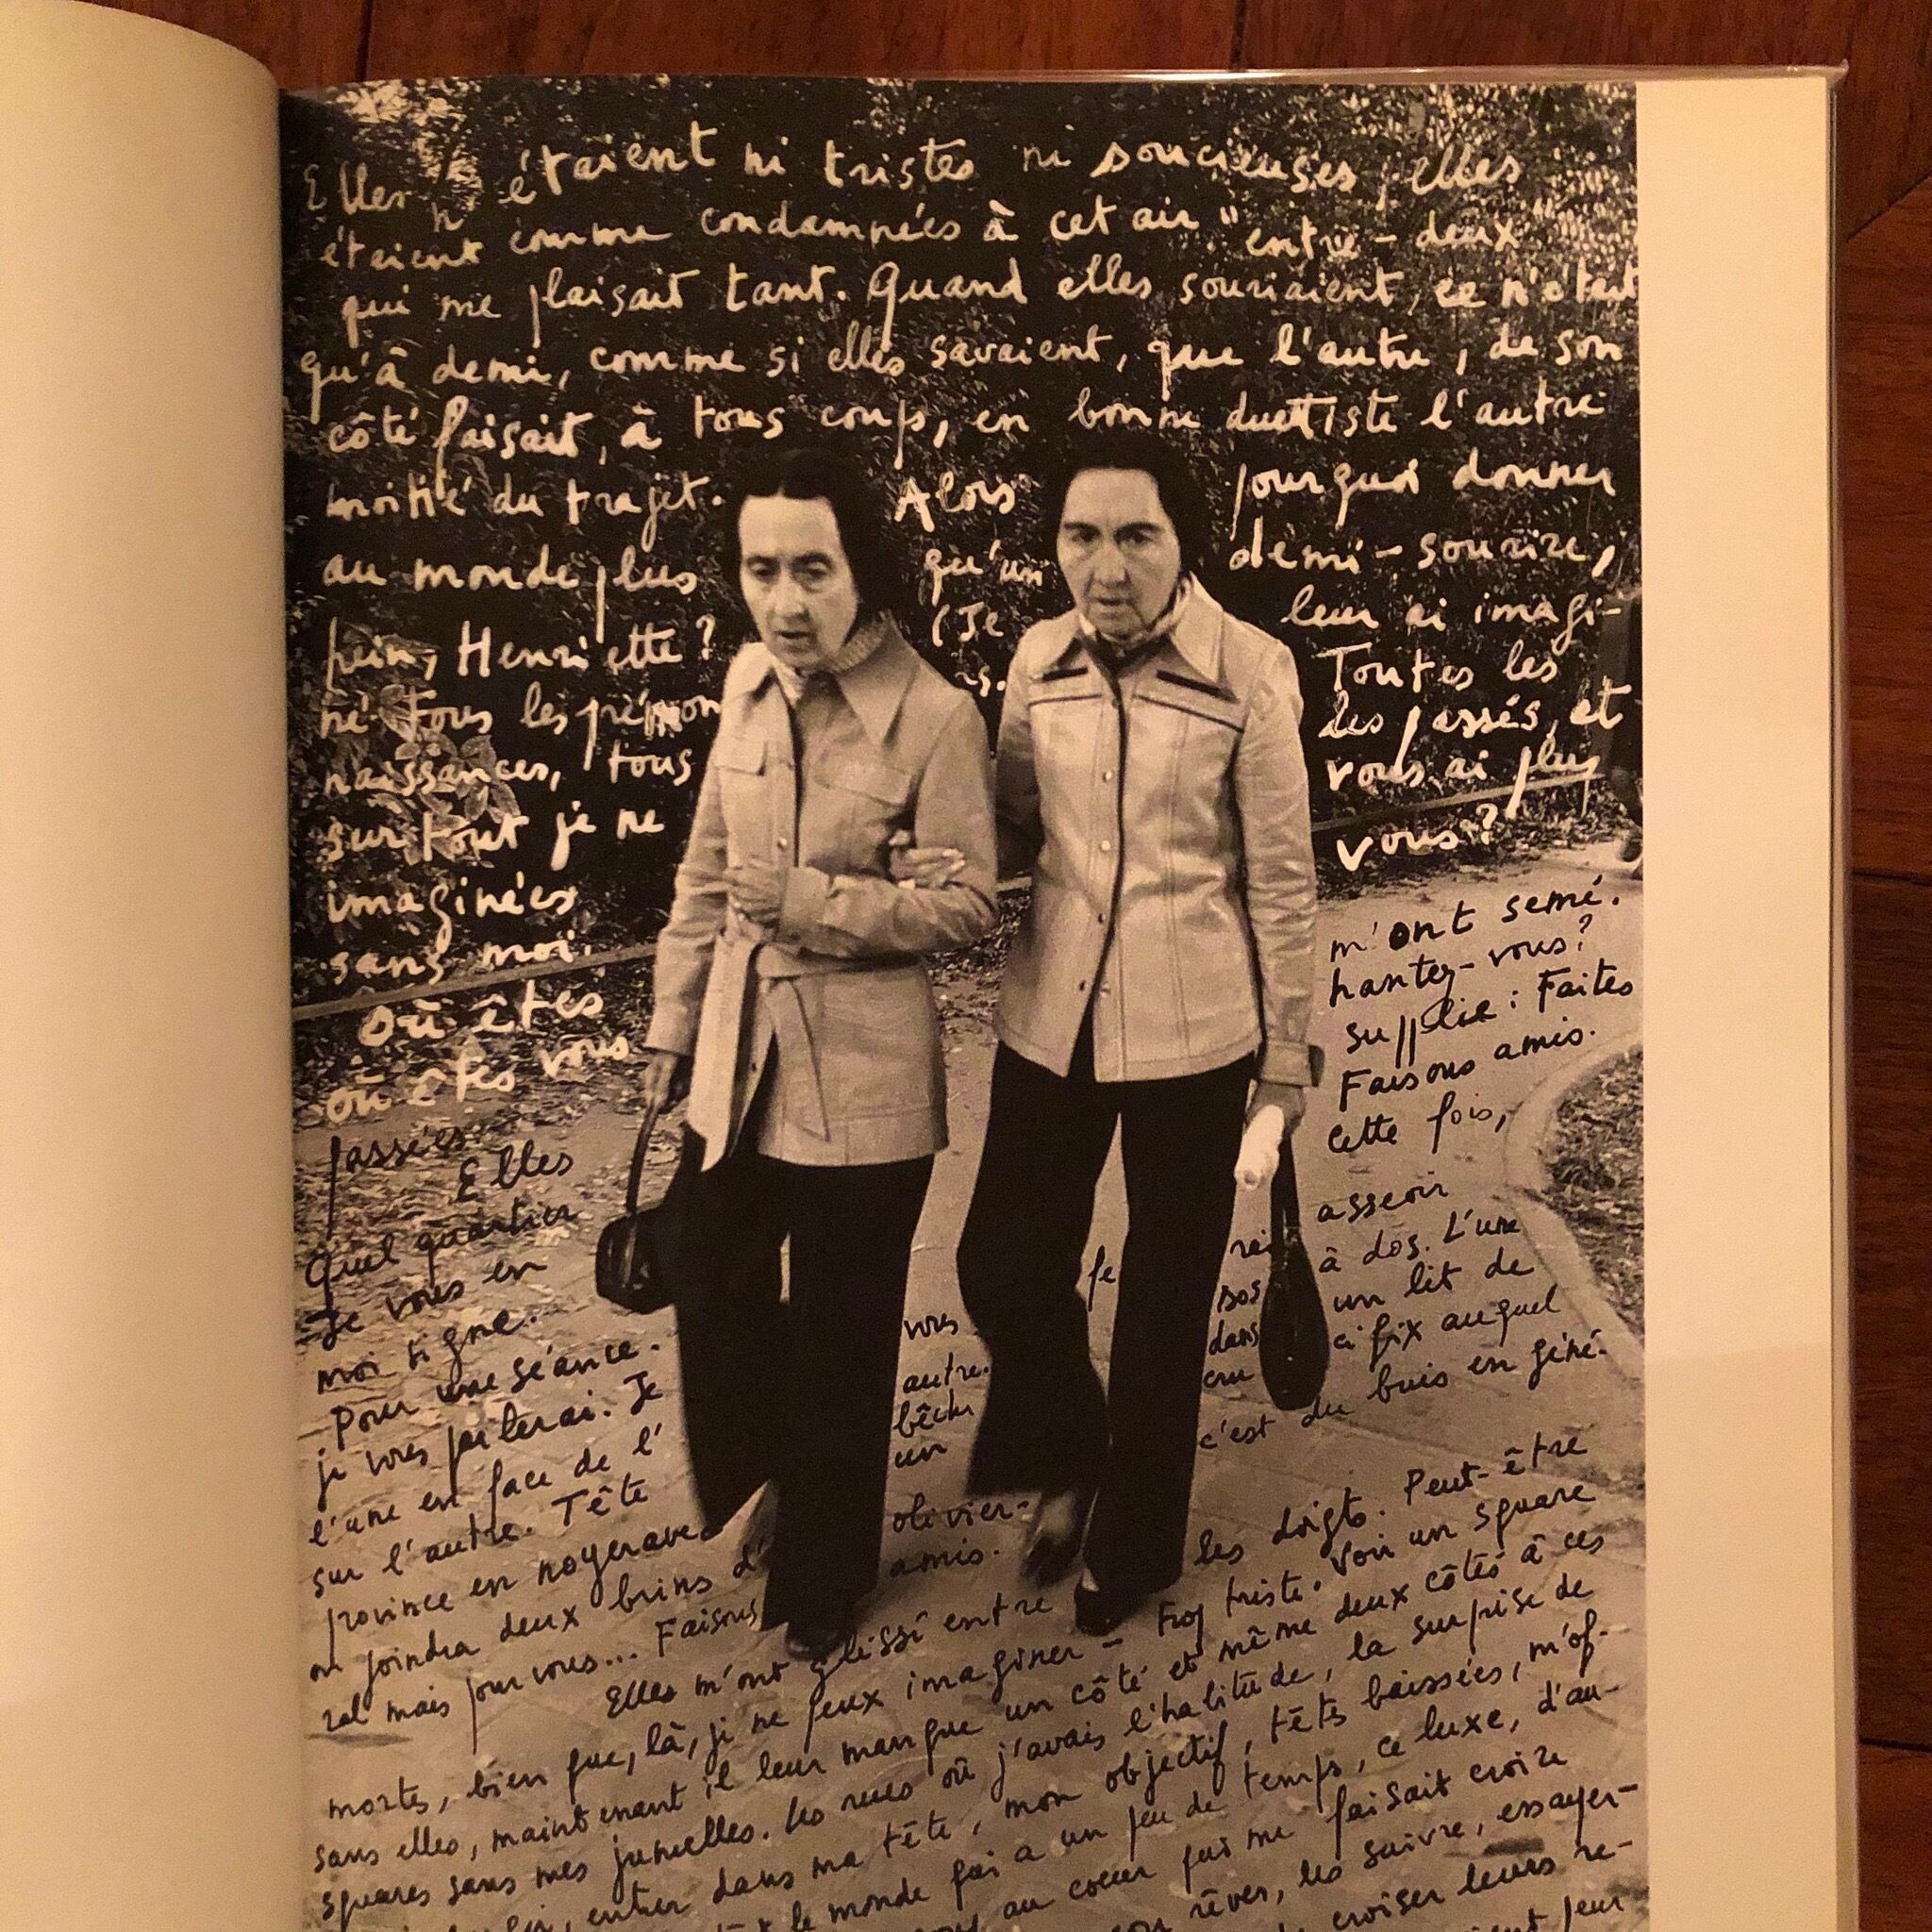 Elles n'étaient ni tristes ni soucieuses, elles
étaient comme condamnées à cet air "entre-deux"
qui me plaisait tant. Quand elles souriaient, ce n'était
qu'à demi, comme si elles savaient, que l'autre, de son
côté faisait, à tous coups, en bonne duettiste l'autre
moitié du trajet. Alors pourquoi donner
au monde plus qu'un demi-sourire,
hein, Henriette? (Je leur ai imagi-
né tous les prénoms. Toutes les
naissances, tous les passés, et
surtout je ne vous ai plus
imaginées vous?
sans moi.
Où êtes
Où êtes vous
passées m'ont semé.
Elles hantez-vous?
Quel quartier supplie: Faites
Je vous en Faisons amis.
moi signe. cette fois,
Pour une séance.
je vous paierai. Je vous asseoir
l'une en face de l' autre. à dos. L'une
sur l'autre. Tête un lit de
province en noyer avec un ci fix auquel
on joindra deux brins d' olivier- c'est du buis en géné-
ral mais pour vous... Faisons amis.
Elles m'ont glissé entre les doigts. Peut-être
mortes, bien que, là, je ne peux imaginer - Trop triste. Voir un square
sans elles, maintenant il leur manque un côté et même deux côtés à ces
squares sans mes jumelles. Les rues où j'avais l'habitude, la surprise de
entrer dans ma tête, mon objectif, têtes baissées, m'of-
le monde qui a un peu de temps, ce luxe, d'au-
au coeur qui me faisait croire
rêves, les suivre, essayer-
croiser leurs re-
leur